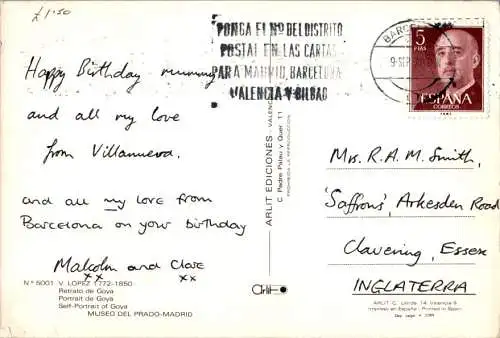 £1.50
PONGA EL Nº DEL DISTRITO
POSTAL EN LAS CARTAS
PARA MADRID, BARCELONA
VALENCIA Y BILBAO
BARCEL
5
PTAS
ESPAÑA
CORREOS
Happy Birthday mummy
and all my love
from Villanueva.
and all my love from
Barcelona on your birthday
Malcolm and Clare
xx xx
Nº 5001 V. LOPEZ 1772-1850
Retrato de Goya
Portrait de Goya
Self-Portrait of Goya
MUSEO DEL PRADO-MADRID
ARLIT EDICIONES - VALENC
C. Padre Palau y Quer 11
PROHIBIDA LA REPRODUCCION
Arlit
Mrs. R.A.M. Smith,
'Saffrons', Arkesden Road
Clavering, Essex
INGLATERRA
Printed in Spain